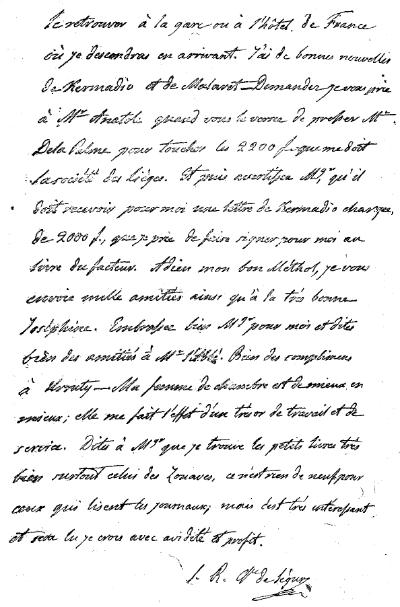 le retrouver à la gare ou à l'hôtel de France
où je descendrai en arrivant. J'ai de bonnes nouvelles
de Kermadio et de Malaret — Demandez je vous prie
à Mr Anatole quand vous le verrez de presser Mr
Dela Palme pour toucher les 2200 f. que me doit
la société des Liéges. Et puis avertissez Mgr qu'il
doit recevoir pour moi une lettre de Kermadio chargée,
de 2000 f., que je prie de faire signer pour moi au
livre du facteur. Adieu mon bon Méthol, je vous
envoie mille amitiés ainsi qu'à la très bonne
Joséphine. Embrassez bien Mgr pour moi et dites
bien des amitiés à Mr l'abbé. Bien des compliments
à — Ma femme de chambre est de mieux en
mieux; elle me fait l'effet d'un trésor de travail et de
service. Dites à Mgr que je trouve les petits livres très
bien surtout celui des Zouaves, ce n'est rien de neuf pour
ceux qui lisent les journaux; mais c'est très intéressant
et sera lu je crois avec avidité et profit.
f. R. Vte de Ségur